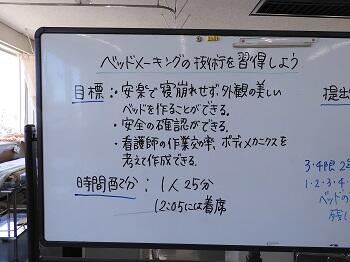 ベッドメーキングの技術を習得しよう
目標:・安楽で寝崩れせず外観の美しい
ベッドを作ることができる。
・安全の確認ができる。
・看護師の作業効率、ボディメカニクスを
考えて作成できる。
時間配分:1人25分
12:05には着席
提出
3・4限
1・2・3・4・
ベッドの
残し